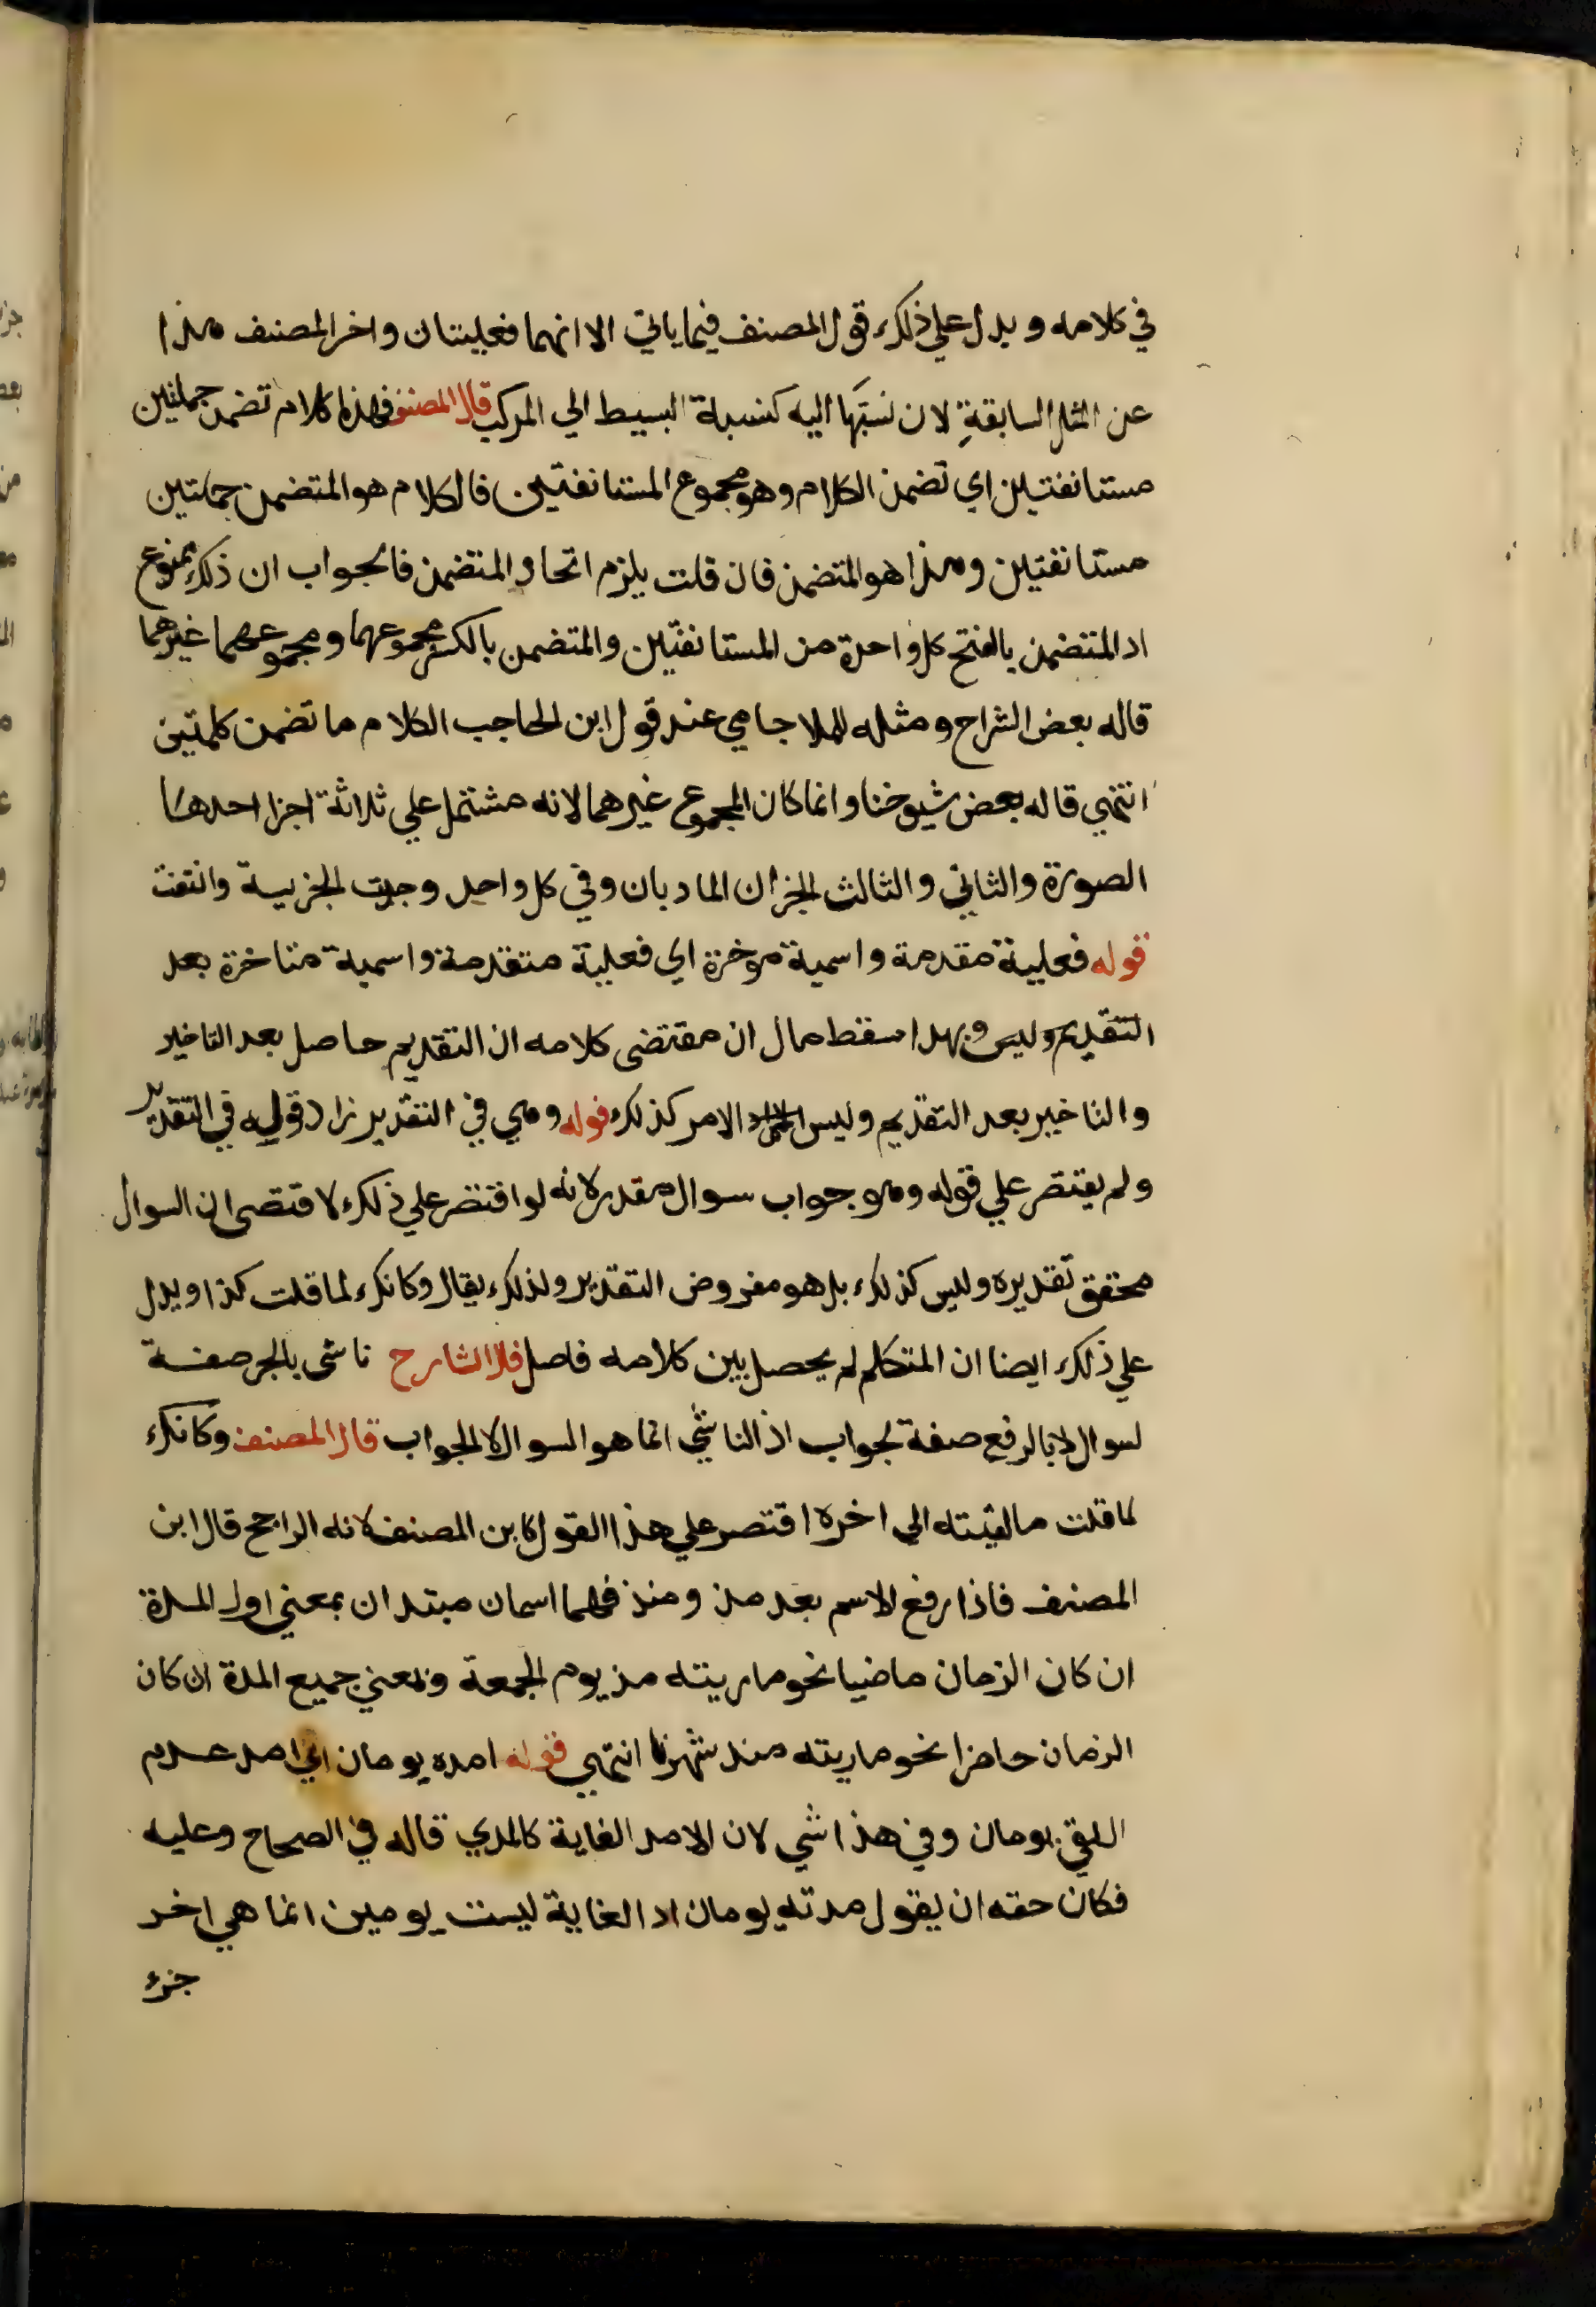 في كلامه ويدل علي ذلك قول المصنف فيما ياتي الا انهما فعليتان واخر المصنف هذا
عن المثل السابقة لان نسبتها اليه كنسبة البسيط الي المركب قال المصنف فهذا كلام تضمن جملتين
مستانفتين اي تضمن الكلام وهو مجموع المستانفتين فالكلام هو المتضمن جملتين
مستانفتين وهذا هو المتضمن فان قلت يلزم اتحاد المتضمن فالجواب ان ذلك ممنوع
اد المتضمن بالفتح كل واحدة من المستانفتين والمتضمن بالكسر مجموعهما ومجموعهما غيرهما
قاله بعض الشراح ومثله للملا جامي عند قول ابن الحاجب الكلام ما تضمن كلمتين
انتهي قاله بعض شيوخنا وانما كان المجموع غيرهما لانه مشتمل علي ثلاثة اجزا احدها
الصورة والثاني والثالث الجزان الماديان وفي كل واحد وجدت الجزيية وانتفت
قوله فعلية مقدمة واسمية موخرة اي فعلية متقدمة واسمية متاخرة بعد
التقديم وليس وبهدا سقط ما ل ان مقتضى كلامه ان التقديم حاصل بعد التاخير
والتاخير بعد التقديم وليس الامر كذلك قوله وهي في التقدير زاد قوله في التقدير
ولم يقتصر علي قوله وهو جواب سوال مقدر لانه لو اقتصر علي ذلك لاقتضى ان السوال
محقق تقديره وليس كذلك بل هو مفروض التقدير ولذلك يقال وكانك لما قلت كذا ويدل
علي ذلك ايضا ان المتكلم لم يحصل بين كلامه فاصل قال الشارح ناشى بالجر صفة
لسوال لا بالرفع صفة لجواب اذ الناشي انما هو السوال لا الجواب قال المصنف وكانك
لما قلت ما لقيته الي اخره اقتصر علي هذا القول كابن المصنف لانه الراجح قال ابن
المصنف فاذا رفع الاسم بعد مذ ومنذ فهما اسمان مبتدان بمعني اول المدة
ان كان الزمان ماضيا نحو ما ريته مذ يوم الجمعة وبمعني جميع المدة ان كان
الزمان حاضرا نحو ما ريته منذ شهرنا انتهي قوله امده يومان اي امد عدم
اللقي يومان وفي هذا شي لان الامد الغاية كالمدي قاله في الصحاح وعليه
فكان حقه ان يقول مدته يومان اد الغاية ليست يومين انما هي اخر
جزء